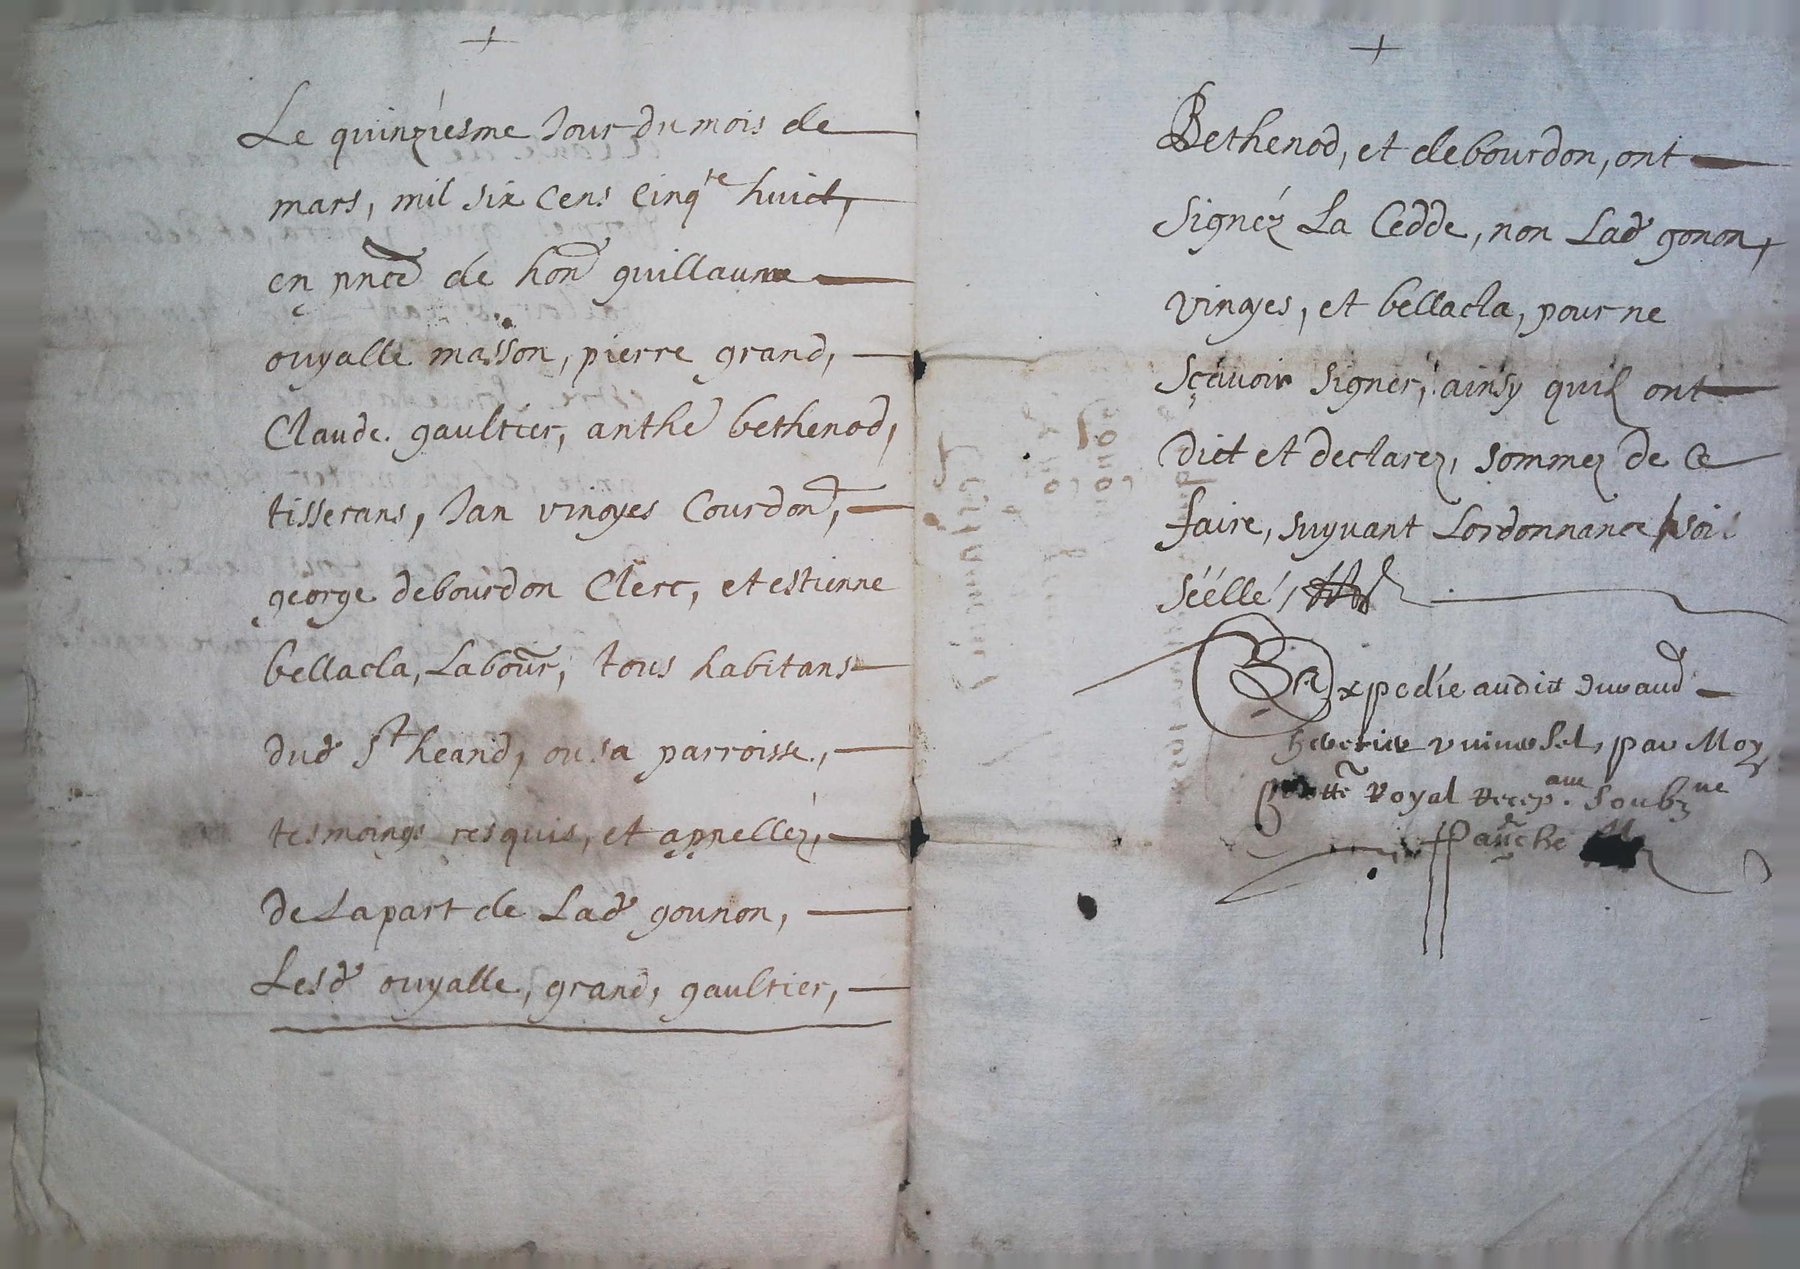 Le quinziesme Jour du mois de
mars, mil six cens Cinqte huict,
en pnce de hon guillaume
ouyalle masson, pierre grand,
Claude gaultier, anthe bethenod,
tisserans, Jan vinoyes Courdon,
george debourdon Clerc, et estienne
bellacla, Labour, tous habitans
dud St heand, ou sa parroisse,
tesmoings resquis, et appellez,
de La part de Lad gounon,
Lesd ouyalle, grand, gaultier,
Bethenod, et debourdon, ont
signéz La Cedde, non Lad gonon,
vinoyes, et bellacla, pour ne
sçavoir signer, ainsy quil ont
dict et declarez, sommez de Ce
faire, suyvant Lordonnance soit
séellé,
Expedie audit durand
par Moy
Royal soubzne
Panche